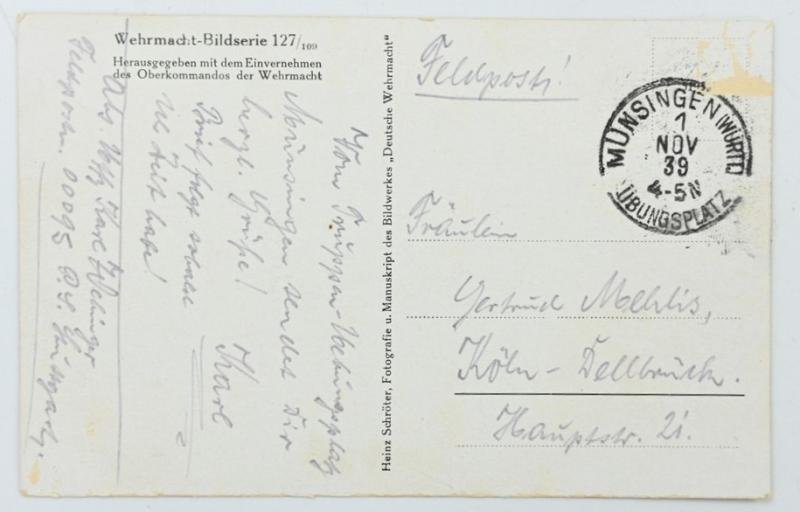 Wehrmacht-Bildserie 127/109
Herausgegeben mit dem Einvernehmen
des Oberkommandos der Wehrmacht
Vom Truppen-Uebungsplatz
Münsingen sendet Dir
herzl. Grüße!
Brief folgt sobald
ich Zeit habe!
Karl
Abs. Uffz. Karl
Feldpostn. 00095 P.S. Stuttgart.
Heinz Schröter, Fotografie u. Manuskript des Bildwerkes „Deutsche Wehrmacht"
Feldpost!
MÜNSINGEN (WÜRTT)
1
NOV
39
4-5N
ÜBUNGSPLATZ
Fräulein
Gertrud Mehlis,
Köln - Dellbrück.
Hauptstr. 21.